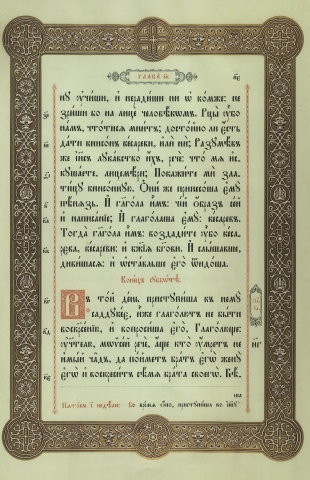 Глава̀ к҃в.
нꙋ ᲂу҆чи́ши, и҆ неради́ши ни ѡ҆ ко́мже: не
зри́ши бо на лицѐ человѣ́кѡмъ. Рцы̀ ᲂу҆̀бо
на́мъ, что́ ти сѧ мни́тъ; досто́йно ли є҆́сть
да́ти кинсо́нъ ке́сареви, и҆лѝ нѝ; Разꙋмѣ́въ
же і҆и҃съ лꙋка́вство и҆́хъ, речѐ: что́ мѧ и҆с
кꙋша́ете, лицемѣ́ри; Покажи́те мѝ зла
ти́цꙋ кинсо́ннꙋю. Ѻ҆ни́ же принесо́ша є҆мꙋ̀
пѣ́нѧзь. И҆ глаго́ла и҆̀мъ: чі́й ѡ҆́бразъ се́й
и҆ написа́нїе; И҆ глаго́лаша є҆мꙋ̀: ке́саревъ.
Тогда̀ глаго́ла и҆̀мъ: воздади́те ᲂу҆̀бо ке́са
рева, ке́сареви: и҆ бж҃їѧ, бг҃ови. И҆ слы́шавше,
диви́шасѧ: и҆ ѡ҆ста́вльше є҆го̀ ѿидо́ша.
Коне́цъ сꙋббѡ́тѣ.
Въ то́й де́нь пристꙋпи́ша къ немꙋ̀
саддꙋке́є, и҆̀же глаго́лютъ не бы́ти
воскресе́нїю, и҆ вопроси́ша є҆го̀, Глаго́люще:
ᲂу҆чт҃лю, мѡѷсе́й речѐ, а҆́ще кто̀ ᲂу҆́мретъ не
и҆мы́й ча́дъ, да по́йметъ бра́тъ є҆гѡ̀ женꙋ̀
є҆гѡ̀ и҆ воскреси́тъ сѣ́мѧ бра́та своегѡ̀. Бѣ́
ша
Во вре́мѧ ѻ҆́но, пристꙋпи́ша ко і҆и҃сꙋ